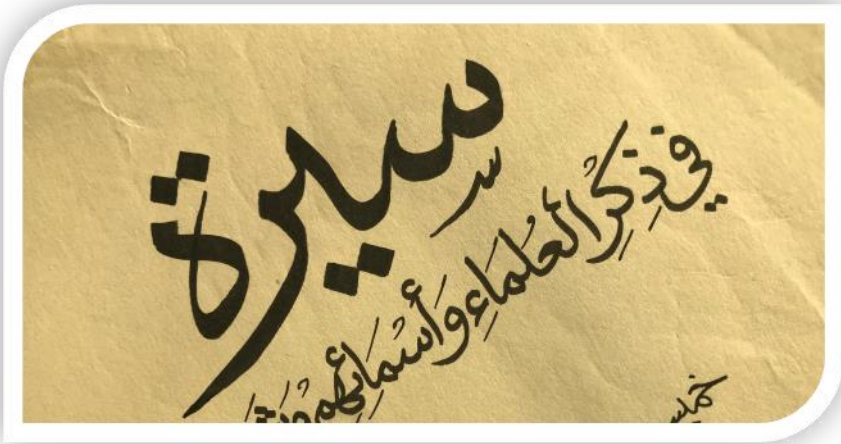 سيرة
في ذِكْرِ العُلَمَاءِ وَأَسْمَائِهِم